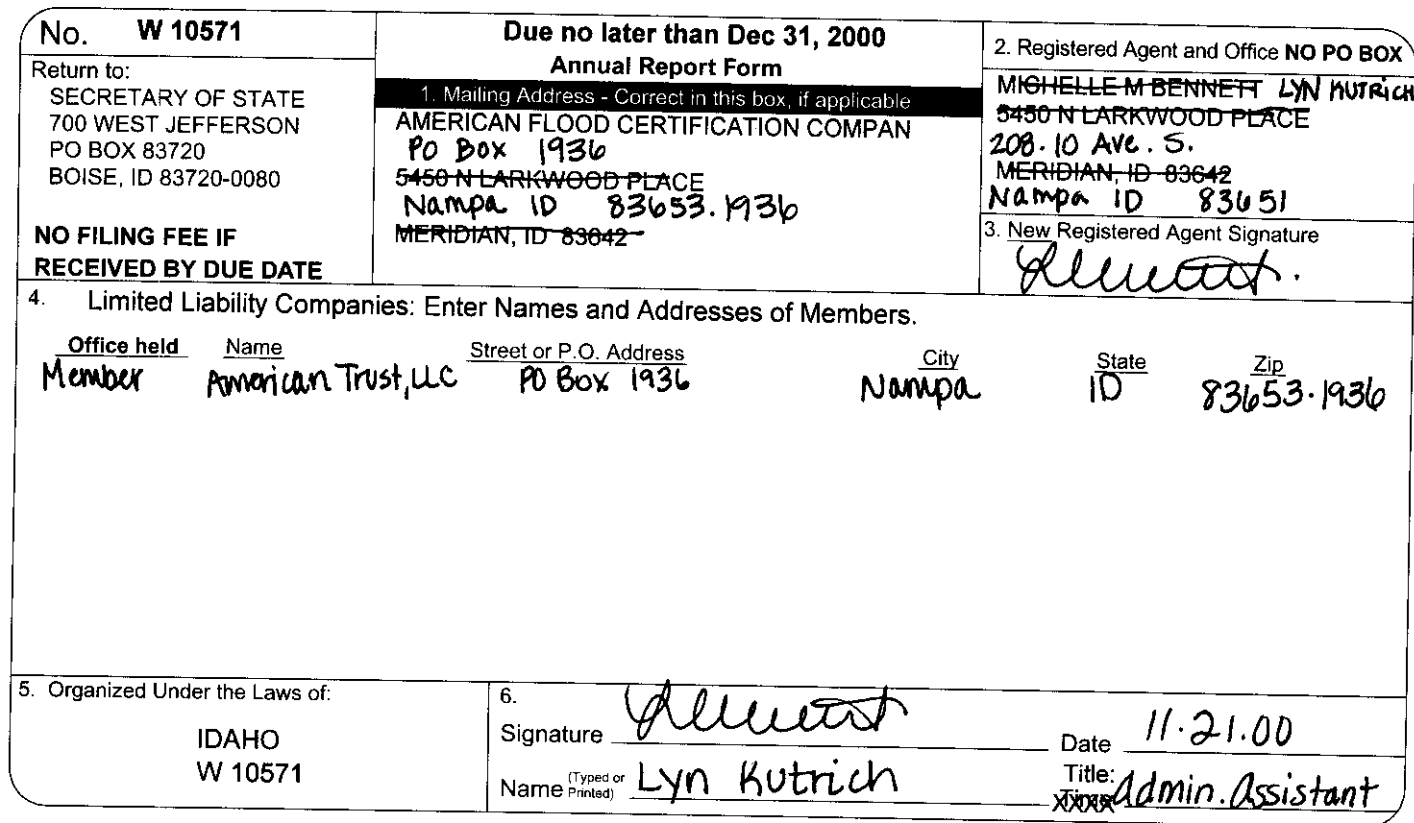 No. W 10571
Return to:
SECRETARY OF STATE
700 WEST JEFFERSON
PO BOX 83720
BOISE, ID 83720-0080
NO FILING FEE IF
RECEIVED BY DUE DATE
Due no later than Dec 31, 2000
Annual Report Form
1. Mailing Address - Correct in this box, if applicable
AMERICAN FLOOD CERTIFICATION COMPAN
PO Box 1936
5450 N LARKWOOD PLACE
Nampa ID 83653.1936
MERIDIAN, ID 83642
2. Registered Agent and Office NO PO BOX
MICHELLE M BENNETT LYN KUTRICH
5450 N LARKWOOD PLACE
208.10 Ave. S.
MERIDIAN, ID 83642
Nampa ID 83651
3. New Registered Agent Signature
4. Limited Liability Companies: Enter Names and Addresses of Members.
Office held Name Street or P.O. Address City State Zip
Member American Trust, LLC PO Box 1936 Nampa ID 83653.1936
5. Organized Under the Laws of:
IDAHO
W 10571
6.
Signature
Date 11.21.00
Name (Typed or Printed) Lyn Kutrich
Title: Admin. Assistant